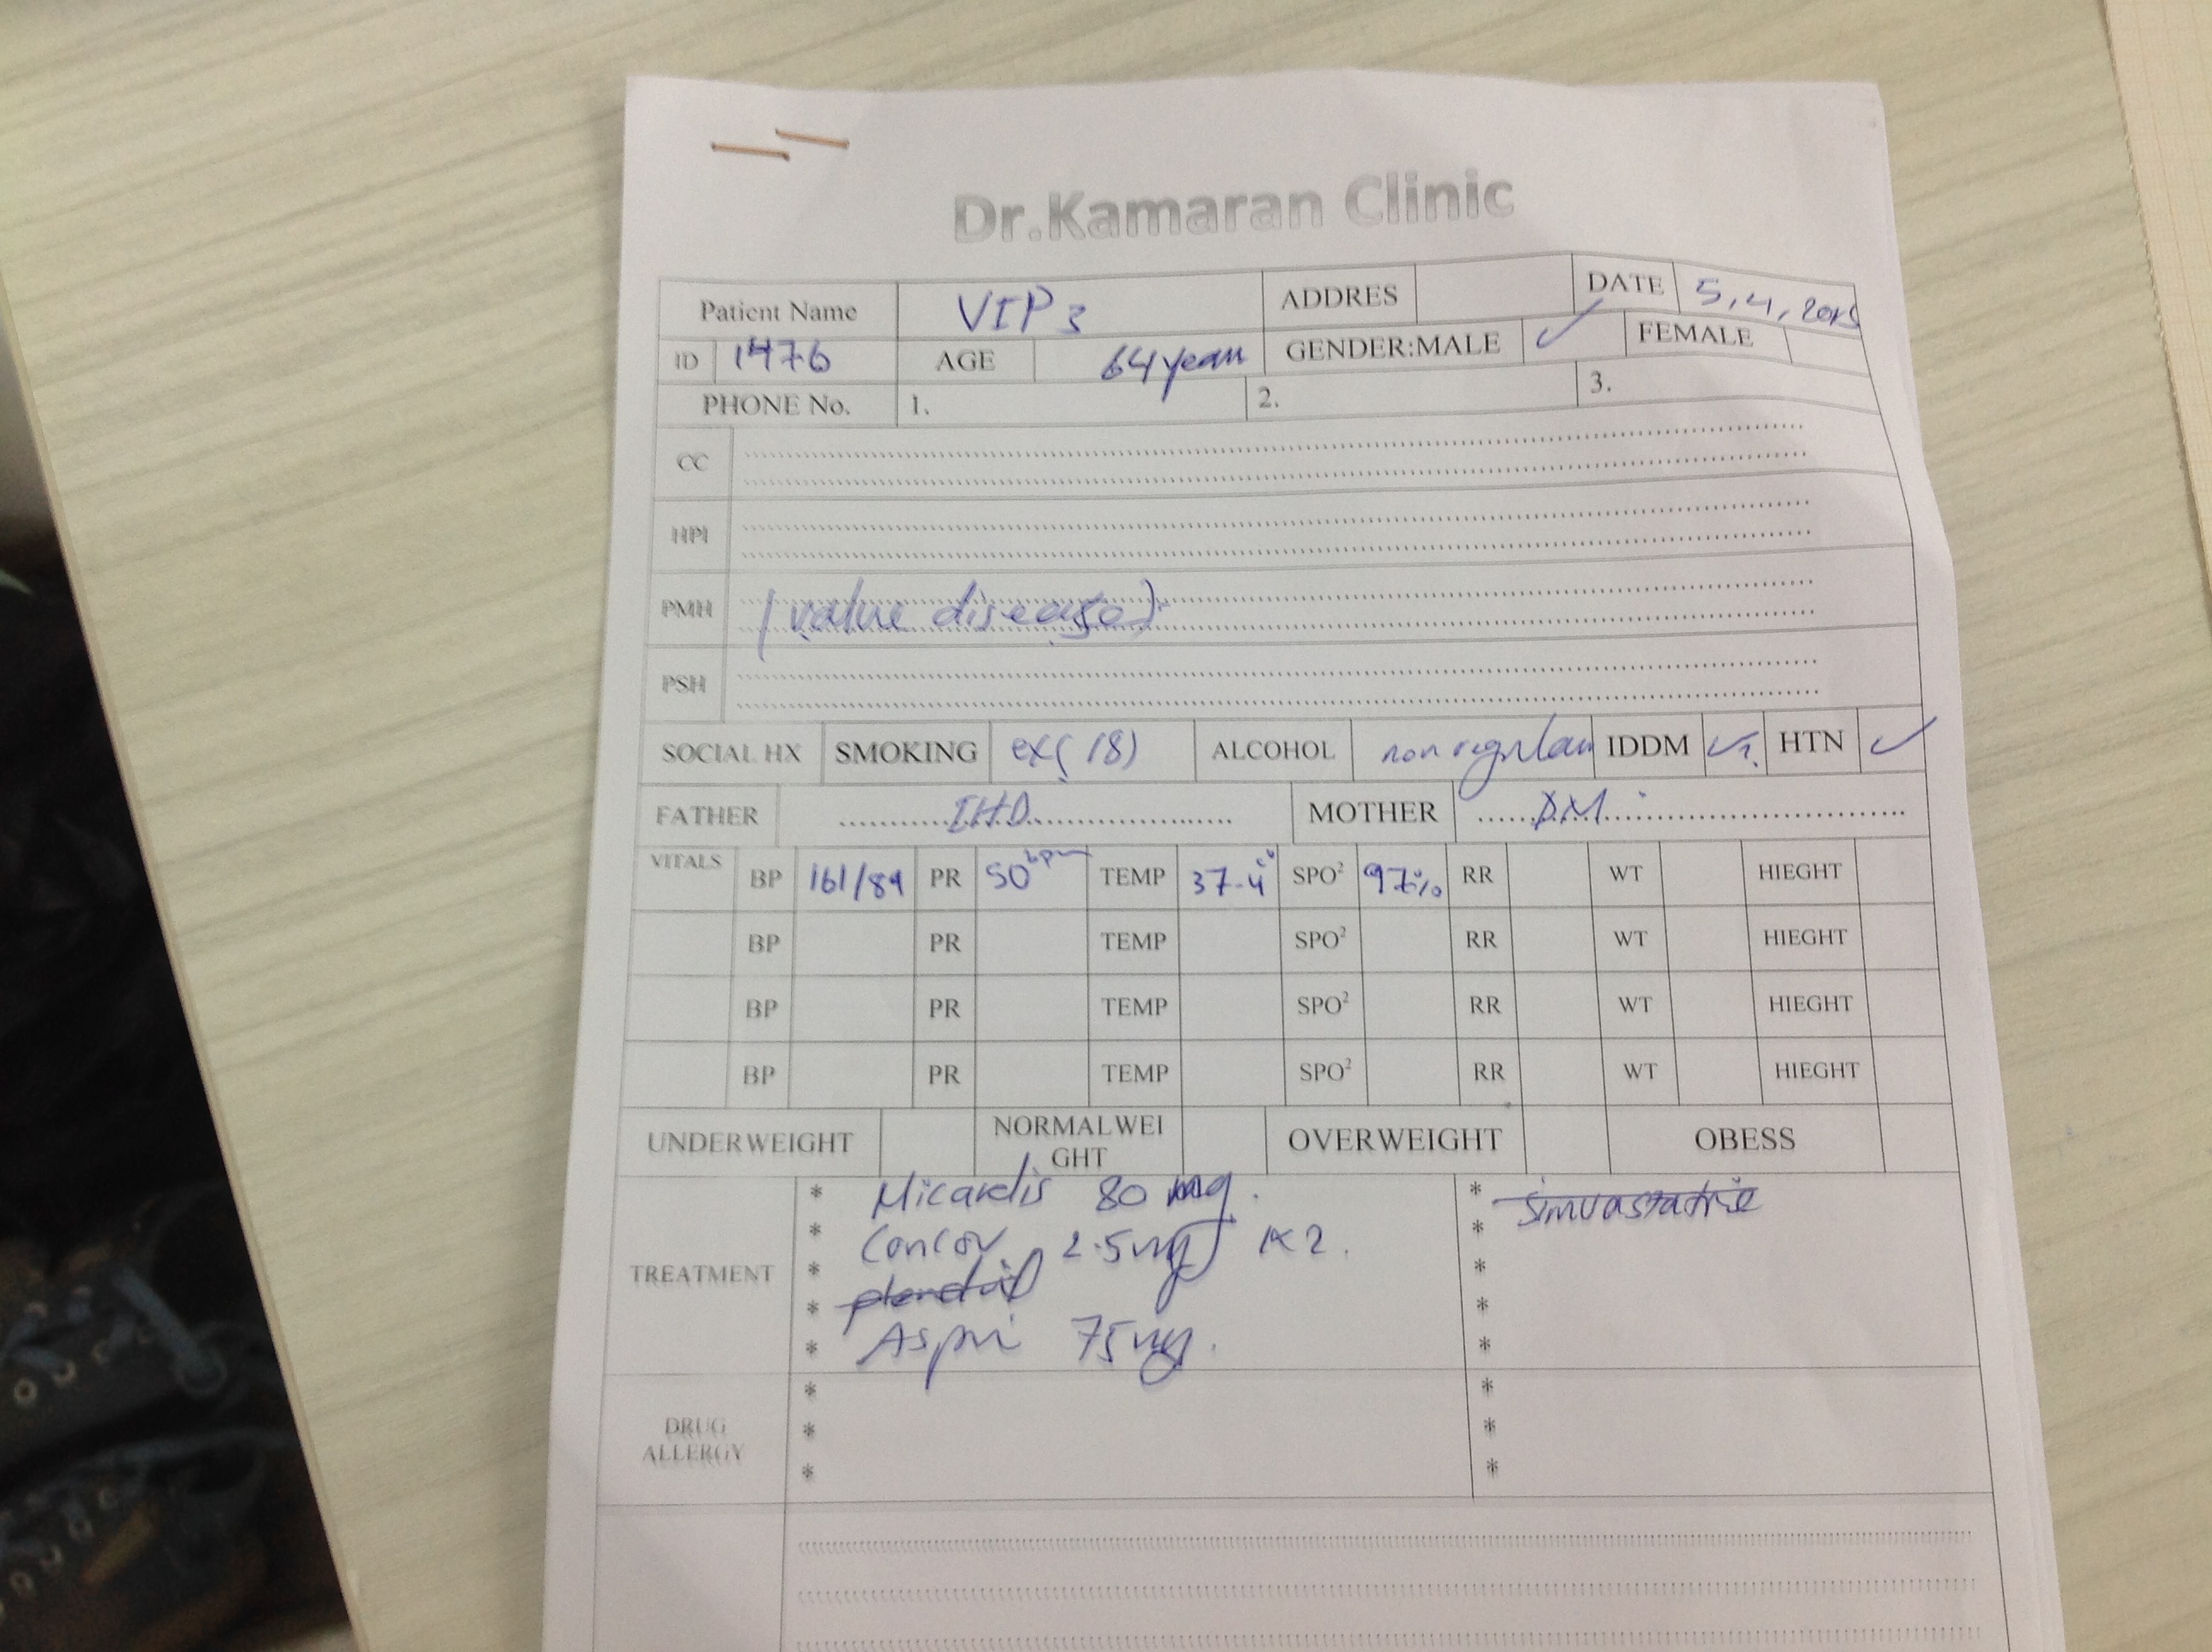 Dr.Kamaran Clinic
Patient Name VIP 3 ADDRES DATE 5,4,2015
ID 1476 AGE 64 years GENDER:MALE ✓ FEMALE
PHONE No. 1. 2. 3.
CC
HPI
PMH (valve disease)
PSH
SOCIAL HX SMOKING ex(18) ALCOHOL non regular IDDM ✓?. HTN ✓
FATHER IHD MOTHER DM
VITALS BP 161/89 PR 50bpm TEMP 37.4 SPO² 97% RR WT HIEGHT
BP PR TEMP SPO² RR WT HIEGHT
BP PR TEMP SPO² RR WT HIEGHT
BP PR TEMP SPO² RR WT HIEGHT
UNDERWEIGHT NORMALWEI OVERWEIGHT OBESS
GHT
* Micardis 80 mg. * simvastatine
* Concor 2.5mg 1x2. *
TREATMENT * *
* plendil *
* Aspri 75mg. *
* *
DRUG * *
ALLERGY
* *